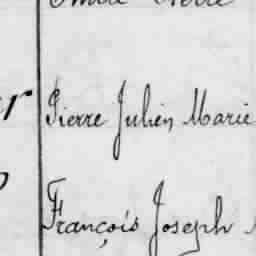 Pierre Julien Marie
François Joseph